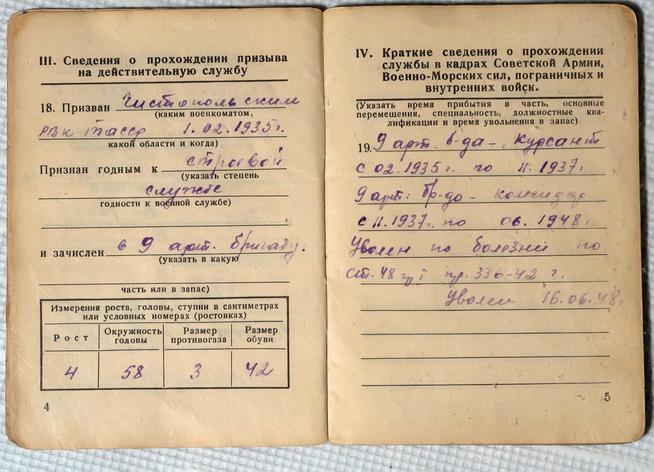 III. Сведения о прохождении призыва
на действительную службу
18. Призван Чистопольским
(каким военкоматом,
РВК ТАССР 1.02.1935г.
какой области и когда)
Признан годным к строевой
(указать степень
службе
годности к военной службе)
и зачислен в 9 арт. бригаду.
(указать в какую
часть или в запас)
Измерения роста, головы, ступни в сантиметрах
или условных номерах (ростовках)
Рост Окружность головы Размер противогаза Размер обуви
4 58 3 42
4
IV. Краткие сведения о прохождении
службы в кадрах Советской Армии,
Военно-Морских сил, пограничных и
внутренних войск.
(Указать время прибытия в часть, основные
перемещения, специальность, должностные ква-
лификации и время увольнения в запас)
19. 9 арт. б-да - Курсант
с 02.1935г. по 11.1937г.
9 арт. бр-да -
с 11.1937г. по 06.1948г.
Уволен по болезни по
ст. 48 гр. I пр. 336-42 г.
Уволен 16.06.48г.
5